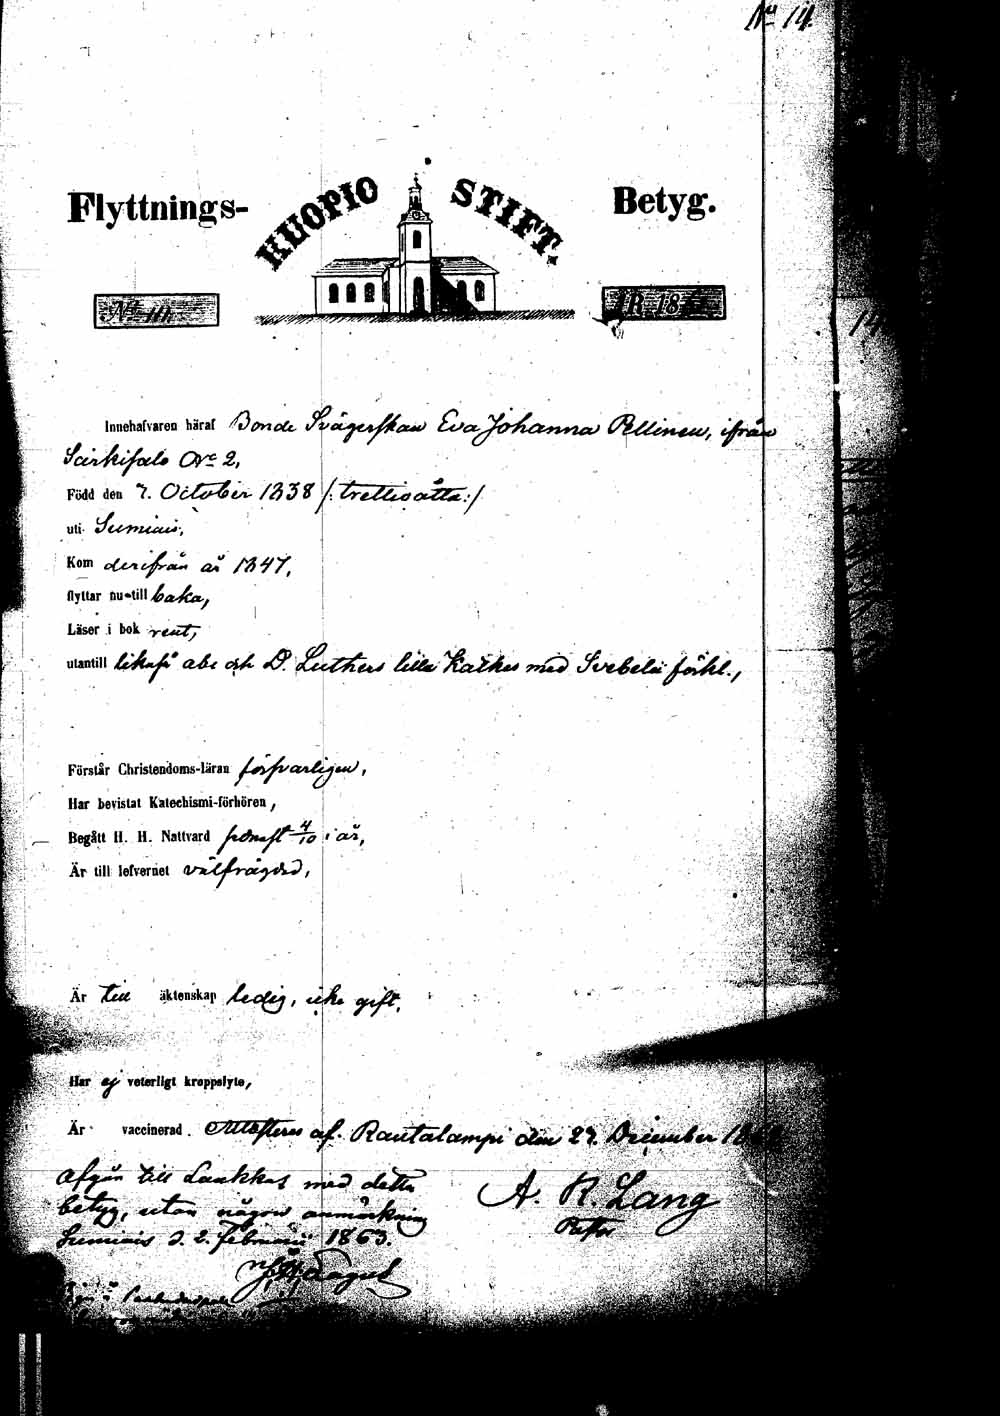 No 14.
Flyttnings- KUOPIO STIFT. Betyg.
No
ÅR 18
14
Innehafvaren häraf Bonde Svägerskan Eva Johanna Pellinen, ifrån
Särkisalo No 2,
Född den 7. October 1838 /: trettioåtta :/
uti Sumiais,
Kom derifrån år 1847,
flyttar nu till baka,
Läser i bok rent,
utantill likaså abc och D. Luthers lilla Katkes med Svebelii förkl.,
Förstår Christendoms-läran försvarligen,
Har bevistat Katechismi-förhören,
Begått H. H. Nattvard senast 4/10 i år,
Är till lefvernet välfräjdad,
Är till äktenskap ledig, icke gift.
Har ej veterligt kroppslyte,
Är vaccinerad. Attesteras af. Rautalampi den 27. December
Afgår till Laukkas med detta
betyg, utan någon anmärkning
Sumiais d. 2. Februarii 1863.
A. R. Lang
Pastor